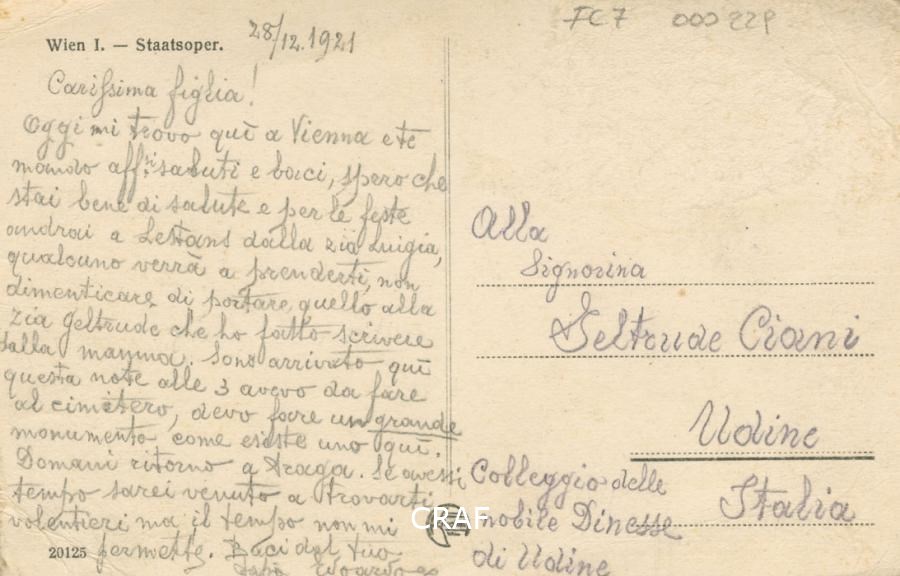 Wien I. — Staatsoper.
28/12.1921
FC7 000229
Carissima figlia!
Oggi mi trovo quì a Vienna e te
mando aff.ti saluti e baci, spero che
stai bene di salute e per le feste
andrai a Lestans dalla zia Luigia,
qualcuno verrà a prenderti, non
dimenticare di portare quello alla
zia Geltrude che ho fatto scrivere
dalla mamma. Sono arrivato quì
questa note alle 3 avevo da fare
al cimitero, devo fare un grande
monumento come esiste uno quì.
Domani ritorno a Praga. Se avessi
tempo sarei venuto a trovarti
volentieri ma il tempo non mi
permette. Baci dal tuo
Edoardo
20125
Alla
Signorina
Geltrude Ciani
Udine
Italia
Colleggio delle
nobile Dinesse
di Udine
CRAF